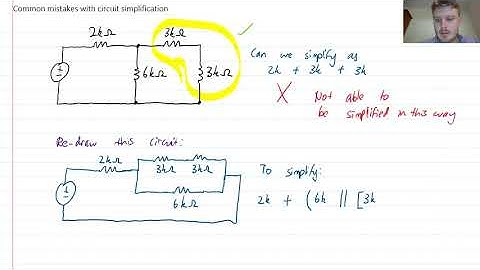 Common mistakes with circuit simplification
2kΩ
3kΩ
6kΩ
3kΩ
Can we simplify as
2k + 3k + 3k
X Not able to
be simplified in this way
Re-draw this circuit:
2kΩ
3kΩ 3kΩ
6kΩ
To simplify:
2k + (6k || [3k